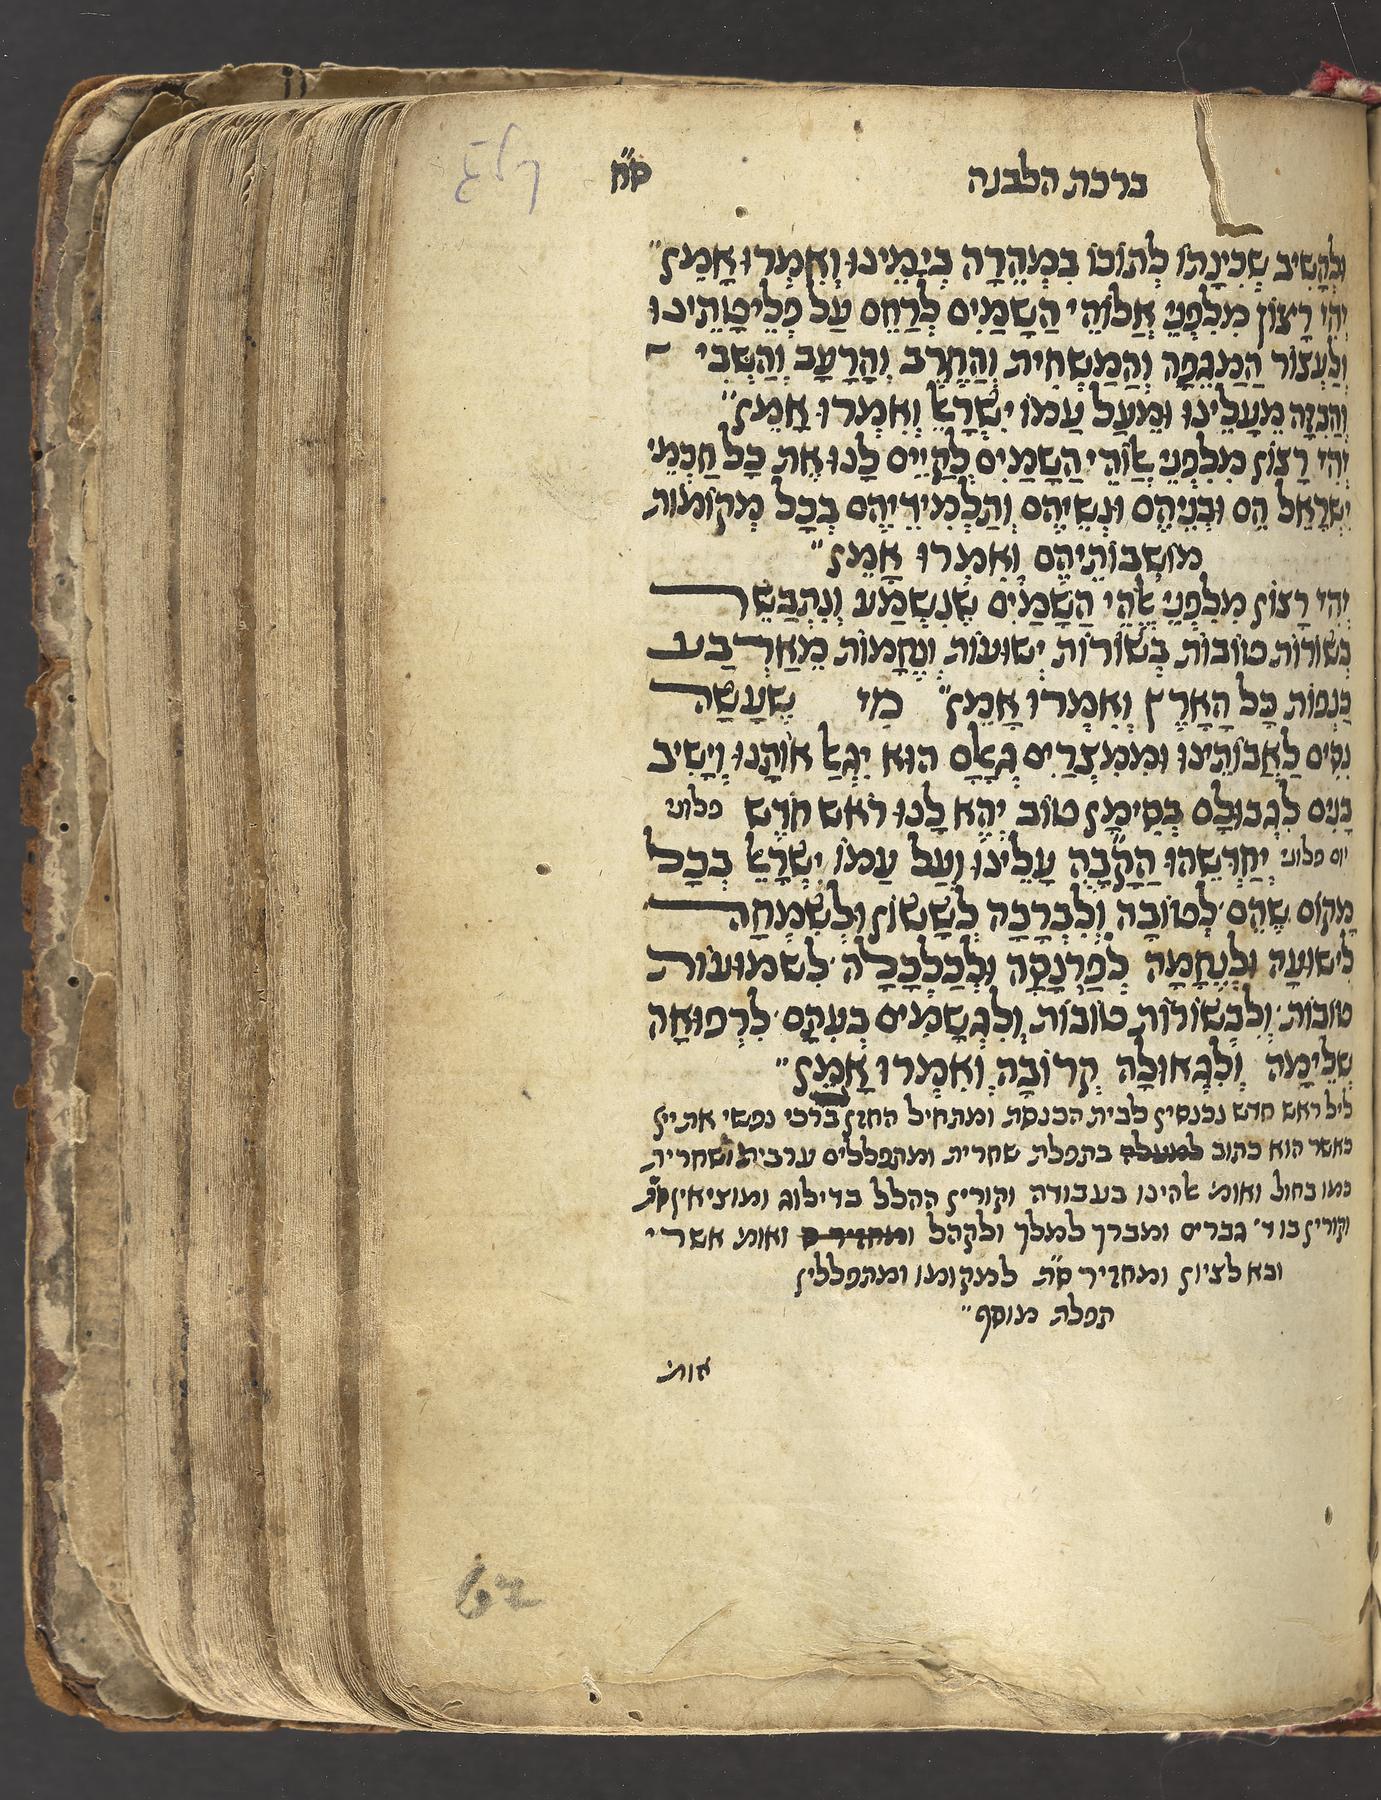 ברכת הלבנה ס״ח
ולהשיב שכינתו לתוכו במהרה בימינו ואמרו אמן״
יהי רצון מלפני אלוהי השמים לרחם על פליטותינו
ולעצור המגפה והמשחית והחרב והרעב והשבי
והבזה מעלינו ומעל עמו ישראל ואמרו אמן״
יהי רצון מלפני אלוהי השמים לקיים לנו את כל חכמי
ישראל הם ובניהם ונשיהם ותלמידיהם בכל מקומות
מושבותיהם ואמרו אמן״
יהי רצון מלפני אלהי השמים שנשמע ונתבשר
בשורות טובות בשורות ישועות ונחמות מארבע
כנפות כל הארץ ואמרו אמן״ מי שעשה
נסים לאבותינו וממצרים גאלם הוא יגאל אותנו וישיב
בנים לגבולם בסימן טוב יהא לנו ראש חדש פלוני
יום פלוני יחדשהו הקב״ה עלינו ועל עמו ישראל בכל
מקום שהם לטובה ולברכה לששון ולשמחה
לישועה ולנחמה לפרנסה ולכלכלה לשמועות
טובות ולבשורות טובות ולגשמים בעתם לרפואה
שלימה ולגאולה קרובה ואמרו אמן״
ליל ראש חדש נכנסין לבית הכנסת ומתחיל החזן ברכי נפשי את ייי
כאשר הוא כתוב למעלה בתפלת שחרית ומתפללים ערבית ושחרית
כמו בחול ואומ׳ אלהינו בעבודה וקורין ההלל בדילוג ומוציאין ס״ת
וקורין בו ד׳ גברים ומברך למלך ולקהל ומחזיר ס ואומ׳ אשרי
ובא לציון ומחזיר ס״ת למקומו ומתפללין
תפלת מוסף״
אומ׳
62